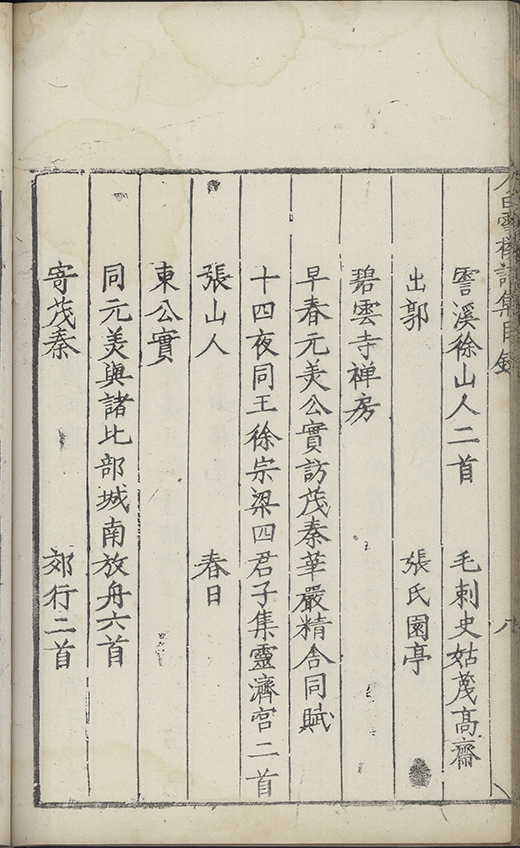 白雪樓詩集目錄 八
霅溪徐山人二首 毛刺史姑蔑高齋
出郭 張氏園亭
碧雲寺禅房
早春元美公實訪茂秦華嚴精舍同賦
十四夜同王徐宗梁四君子集靈濟宮二首
張山人 春日
東公實
同元美與諸比部城南放舟六首
寄茂秦 郊行二首